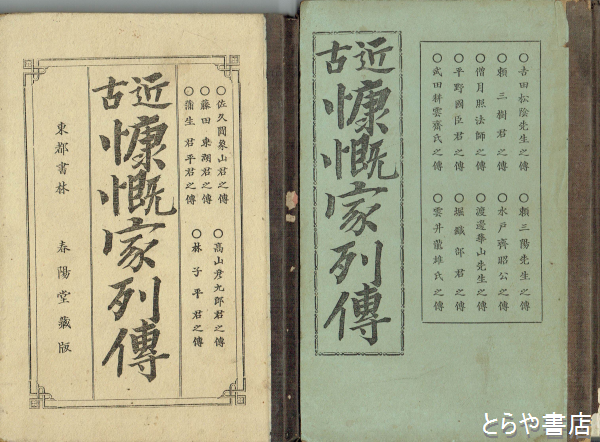 近古
慷慨家列傳
〇佐久間象山君之傳
〇藤田東湖君之傳
〇蒲生君平君之傳
〇高山彦九郎君之傳
〇林子平君之傳
東都書林 春陽堂藏版
近古
慷慨家列傳
〇吉田松陰先生之傳
〇賴三樹君之傳
〇僧月照法師之傳
〇平野國臣君之傳
〇武田耕雲齋氏之傳
〇賴山陽先生之傳
〇水戸齊昭公之傳
〇渡邊華山先生之傳
〇堀織部君之傳
〇雲井龍雄氏之傳
とらや書店